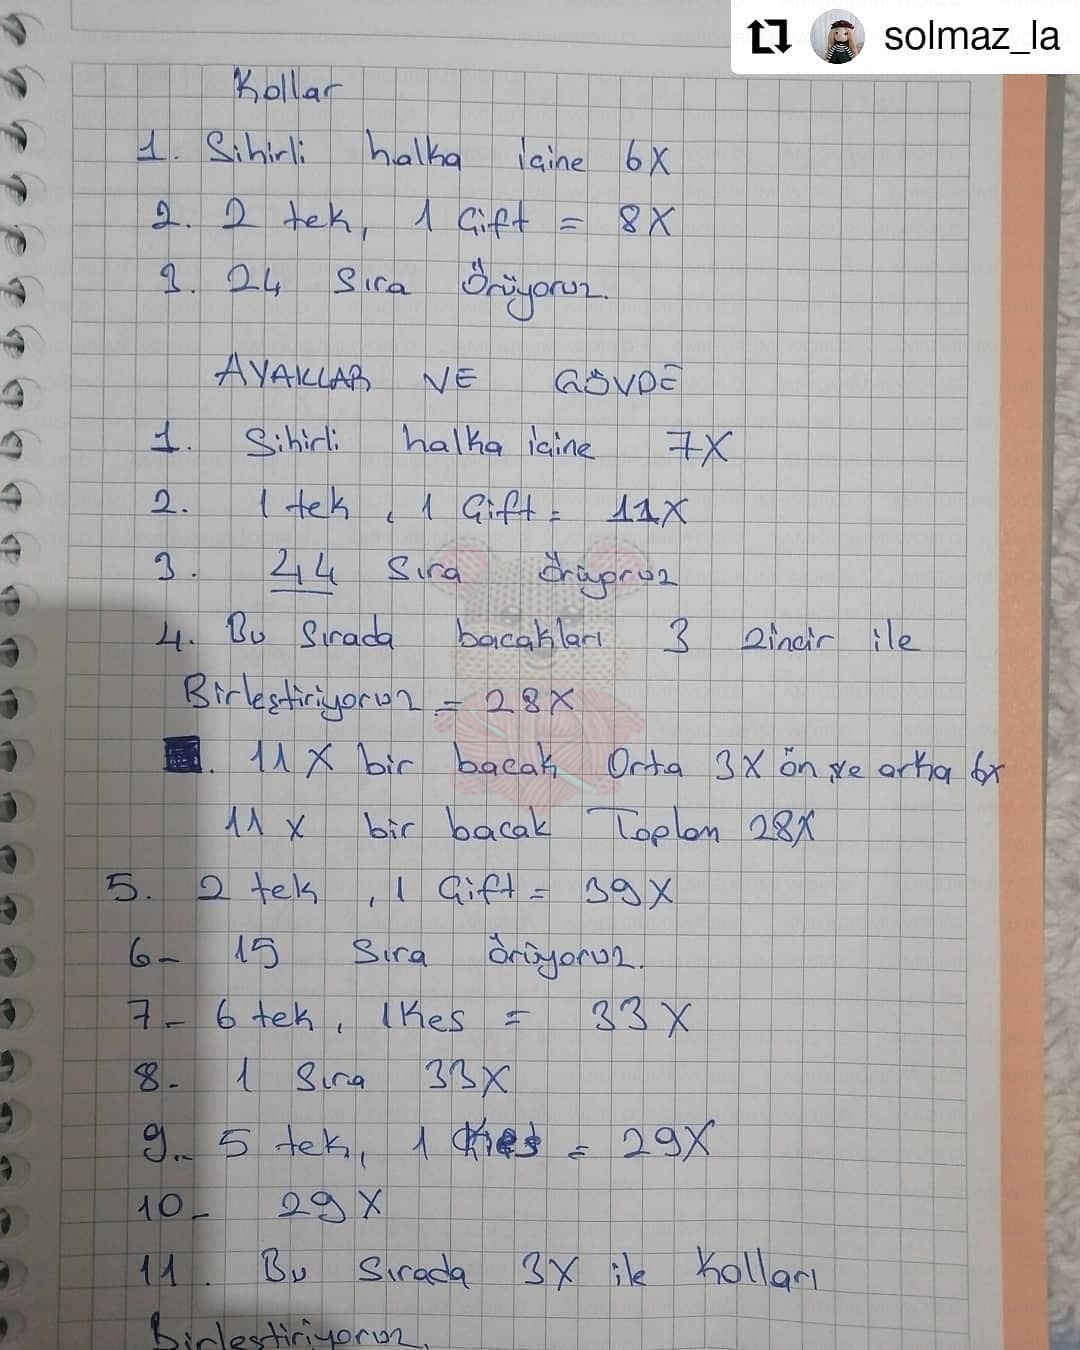 solmaz_la
Kollar
1. Sihirli halka içine 6X
2. 2 tek, 1 Çift = 8X
3. 24 Sıra Örüyoruz.
AYAKLAR VE GÖVDE
1. Sihirli halka içine 7X
2. 1 tek, 1 Çift = 11X
3. 24 Sıra örüyoruz
4. Bu Sırada bacakları 3 zincir ile
Birleştiriyoruz = 28X
. 11X bir bacak Orta 3X ön ve arka 6x
11X bir bacak Toplam 28X
5. 2 tek, 1 Çift = 39X
6- 15 Sıra örüyoruz.
7- 6 tek, 1 Kes = 33X
8- 1 Sıra 33X
9.- 5 tek, 1 Kes = 29X
10- 29X
11. Bu Sırada 3X ile Kolları
Birleştiriyoruz.
AMIGURUMI WORLD